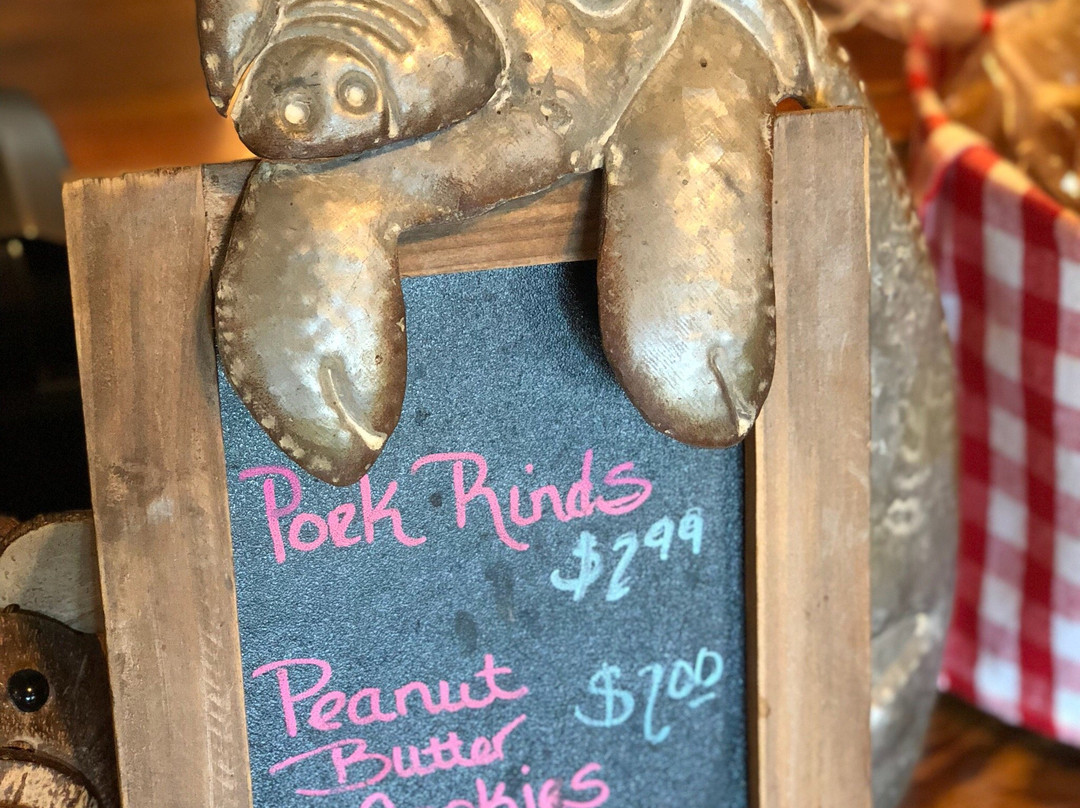 Pork Rinds
$2.99
Peanut $2.00
Butter
Cookies